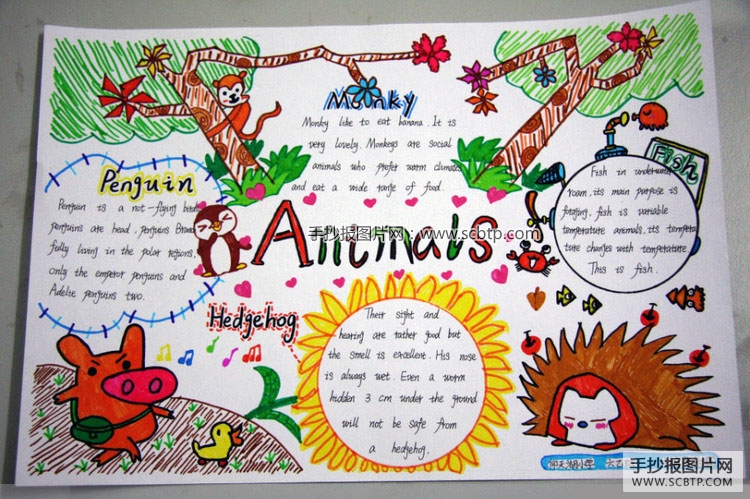 Monky
Monky like to eat banana. It is
very lovely. Monkeys are social
animals who prefer warm climates
and eat a wide range of food.
Penguin
Penguin is a not-flying bird
penguins are head. penguins
fully living in the polar regions,
only the emperor penguins and
Adelie penguins two.
Fish
Fish in underwater
room. its main purpose is
fish is variable
temperature animals, its tempera
ture changes with temperature.
This is fish.
Animals
手抄报图片网:www.scbtp.com
Hedgehog
Their sight and
hearing are rather good but
the smell is excellent. His nose
is always wet. Even a worm
hidden 3 cm under the ground
will not be safe from
a hedgehog.
手抄报图片网
WWW.SCBTP.COM